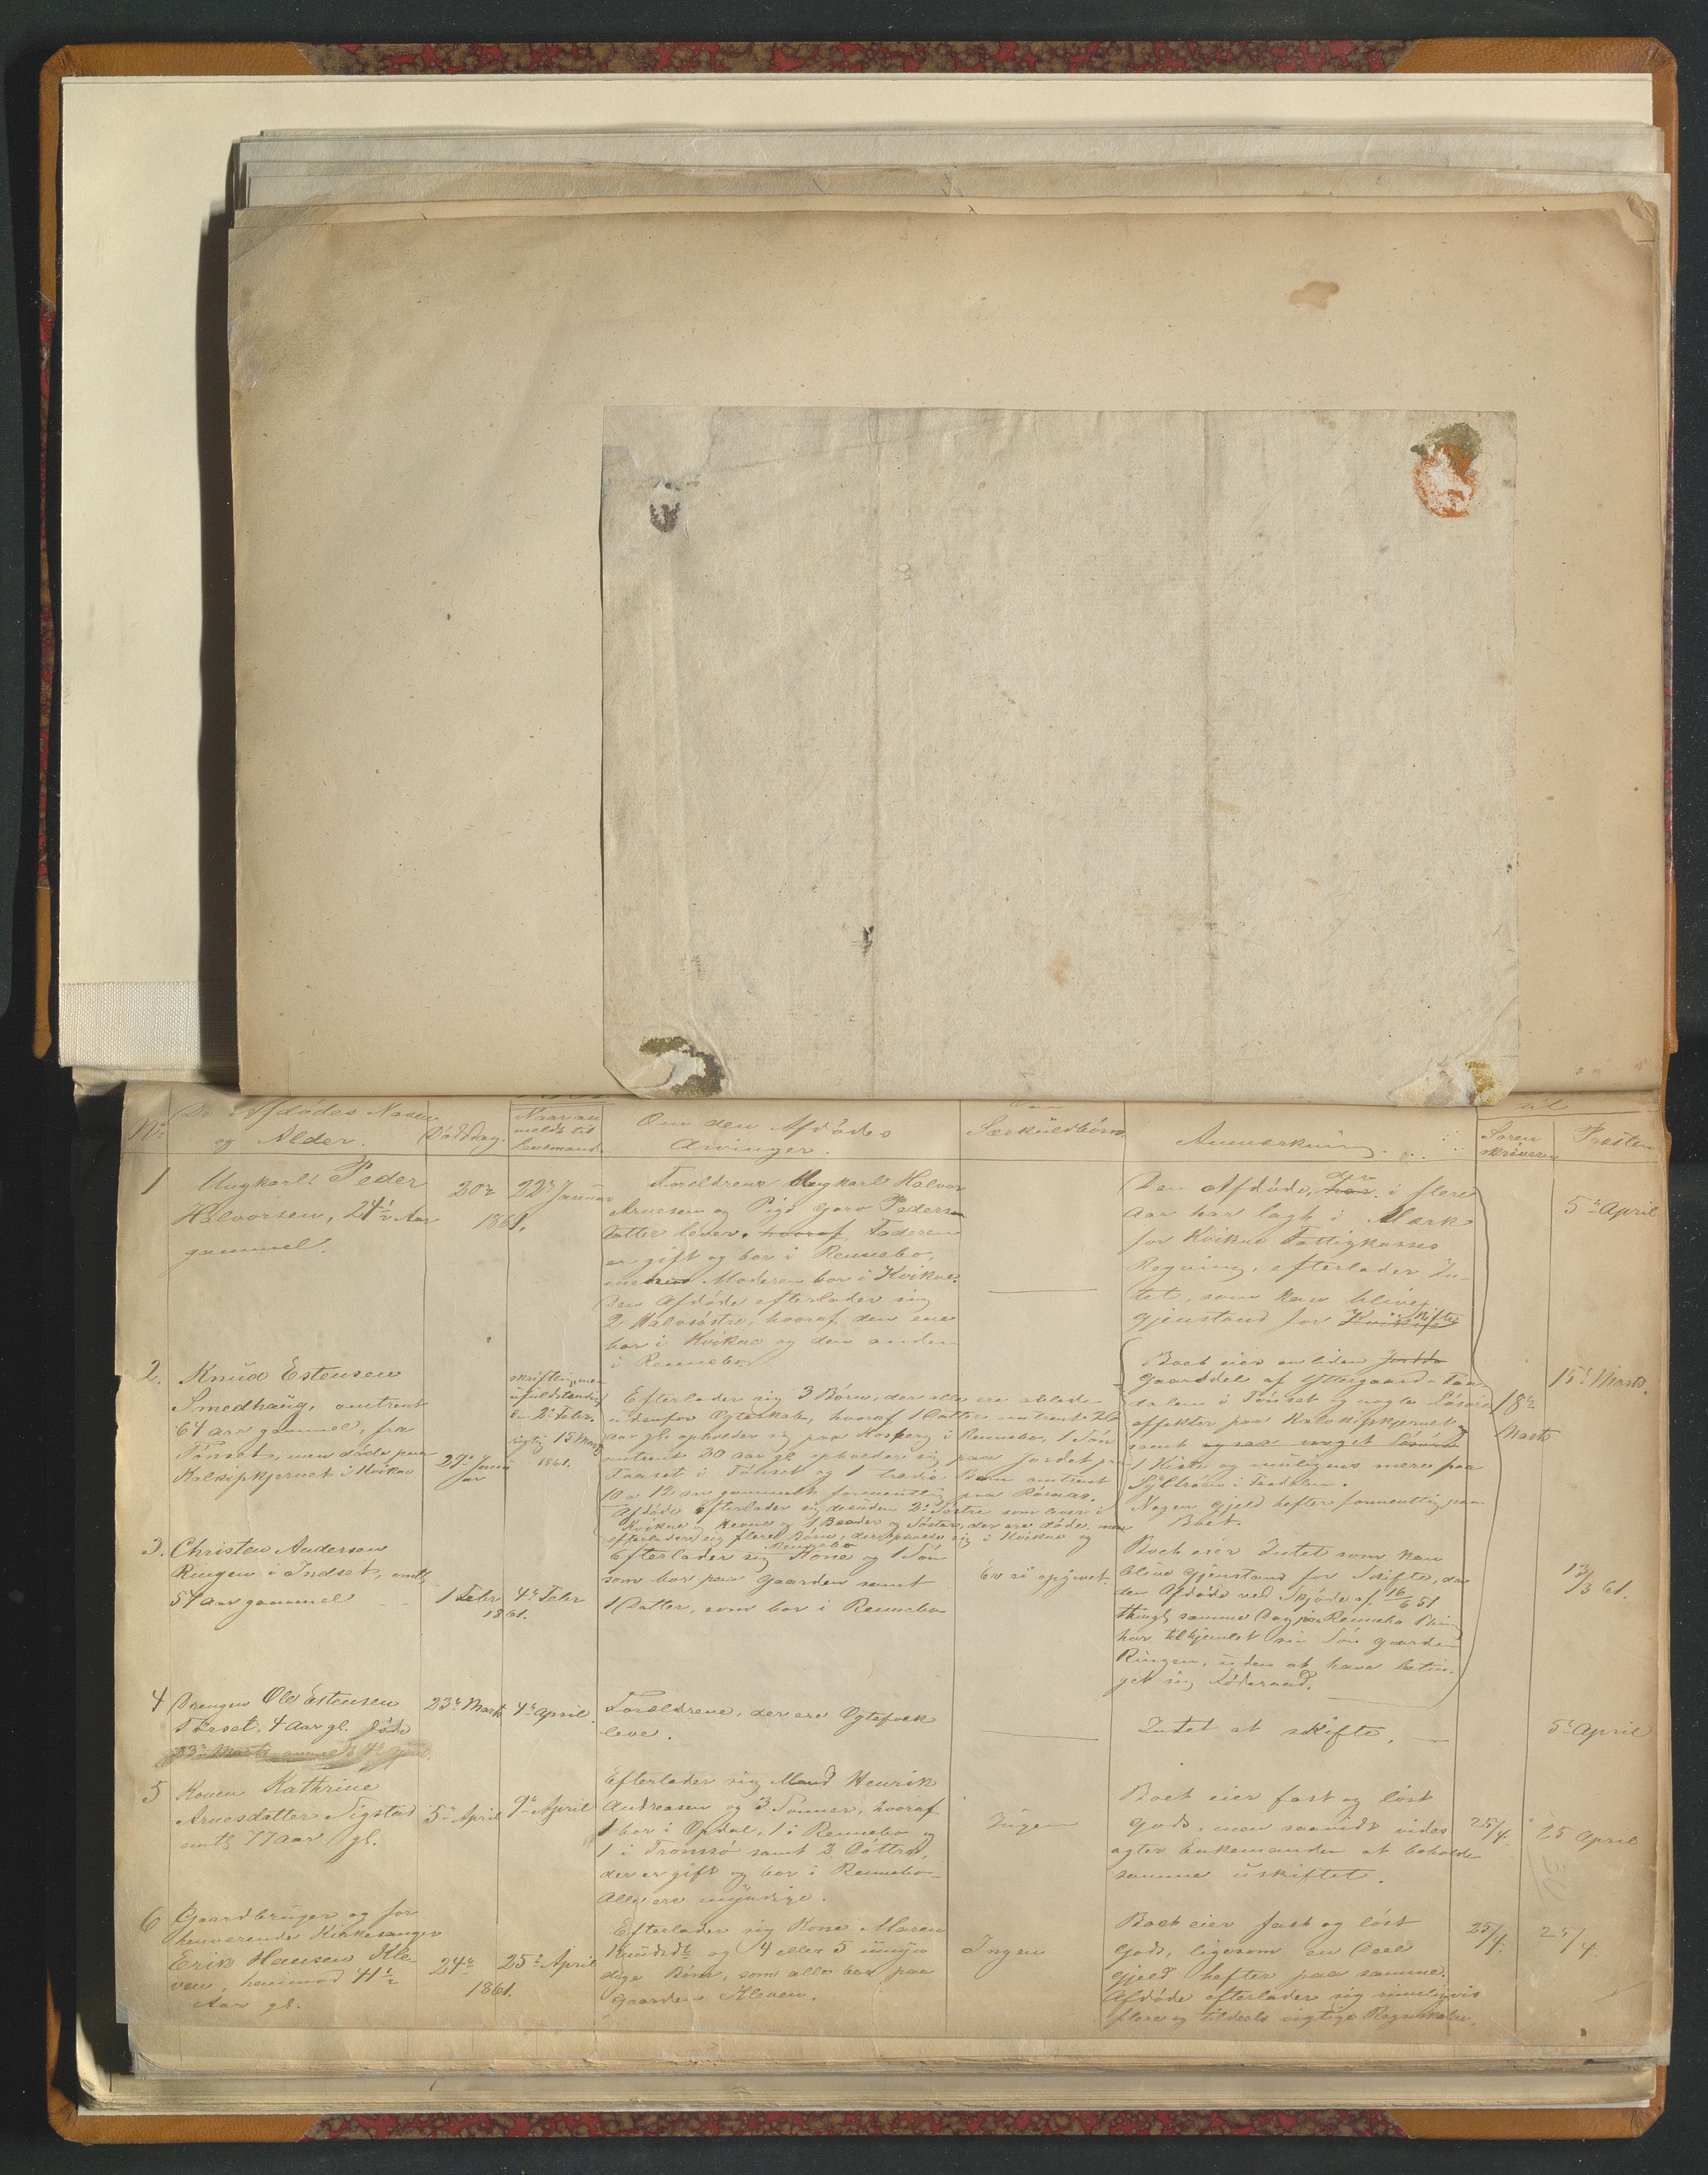 No
De Afdødes Navn
og Alder.
Dødsdag.
Naar an
meldt til
Lensmand.
Om den Afdødes
Arvinger.
Særkuldbørn.
Anmærkning.
til
Soren
skriveren
Presten
1
Ungkarl Peder
Halvorsen, 24½ Aar
gammel.
20de
22de Januar
1861.
Forældrene Ungkarl Halvor
Arnesen og Pige Goro Peders
datter lever. hvoraf Faderen
er gift og bor i Rennebo,
medens Moderen bor i Kvikne.
Den Afdøde efterlader sig
2 Halvsøstre, hvoraf den ene
bor i Kvikne og den anden
i Rennebo.
Den Afdøde, der i flere
Aar har lagt i Mærk
for Kvikne Fattigkasses
Regning, efterlader In-
tet, som kan blive
gjenstand for Skifte
5te April
2.
Knud Estensen
Smedhaug, omtrent
64 aar gammel, fra
Tönset, men døde paa
Kalkipkjernet i Kvikne
29de Janu
ar
skriftlig, men
ufuldstændig
2den Febr.
rigtig 15 Marts
1861.
Efterlader sig 3 Børn, der alle ere avlede
udenfor Ægteskab, hvoraf 1 Datter omtrent
aar gl. opholder sig paa i Rennebo, 1 Søn
omtrent 30 aar gl. opholder sig paa Jordet
i Tönset og 1 tredie Barn omtrent
10 a 12 aar gammelt formentlig paa Röraas.
Afdøde efterlader sig desuden 2de Söstre som lever i
Kvikne og og 1 Broder og Söster, der ere døde, men
efterlader sig flere Børn, der opholde sig i Kvikne og
Rennebo
Boet eier en liden Jordde
Gaarddel af Yttergaard-
dalen i Tönset og nogle Lösöre
effekter paa Kalkipkjernet
samt noget
1 Kiste og muligens mere paa
i
Nogen Gjeld hefter formentlig paa
Boet.
18de
Marts
15de Marts.
3.
Christen Andersen
Ringen i Indset, omtr
54 aar gammel
1 Febr
4de Febr
1861.
Efterlader sig Kone og 1 Søn
som bor paa Gaarden samt
1 Datter, som bor i Rennebo
Er ei opgivet.
Boet eier Intet som kan
blive Gjenstand for Skifte, da
den Afdøde ved Skjöde af 16/6 51
thingl. samme Dag paa Rennebo
har tilhjemlet sin Søn Gaarden
Ringen, uden at have betin-
get sig Föderaad.
13/3 61.
4
Drengen Ole Estensen
4 Aar gl. døde
23de Marts anmeldt 4de April.
23de Marts
4de April
Forældrene, der ere Ægtefolk
leve.
Intet at skifte.
5te April
5
Konen Kathrine
Arnesdatter Sigstad
omtr 77 aar gl.
5te April
9de April
Efterlader sig Mand Henrik
Andreasen og 3 Sønner, hvoraf
1 bor i Opdal, 1 i Rennebo og
1 i Tromsö samt 2 Döttre,
der er gift og bor i Rennebo
Alle ere myndige.
Ingen
Boet eier fast og löst
Gods, men saavidt vides
agter Enkemanden at beholde
samme uskiftet.
25/4.
25 April
6
Gaardbruger og for
henværende Kirkesanger
Erik Hansen Kle
ven, henimod 41½
Aar gl.
24de
25de April
1861.
Efterlader sig Kone Maren
Knudsdtr og 4 eller 5 umyn
dige Børn, som alle bor paa
Gaarden Kleven.
Ingen
Boet eier fast og löst
Gods, ligesom en Deel
Gjeld hefter paa samme.
Afdöde efterlader sig rimeligvis
flere og tildeels vigtige Regnskaber.
25/4.
25/4.